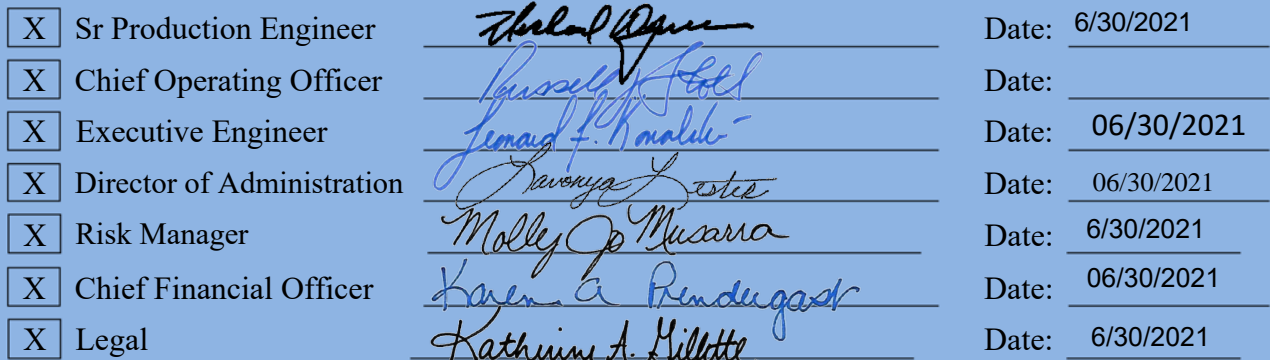 X Sr Production Engineer Date: 6/30/2021
X Chief Operating Officer Russell J. Stoll Date:
X Executive Engineer Leonard F. Kowalski Date: 06/30/2021
X Director of Administration Lavonya Lester Date: 06/30/2021
X Risk Manager Molly Jo Musarra Date: 6/30/2021
X Chief Financial Officer Karen A Prendergast Date: 06/30/2021
X Legal Katherine A. Gillette Date: 6/30/2021